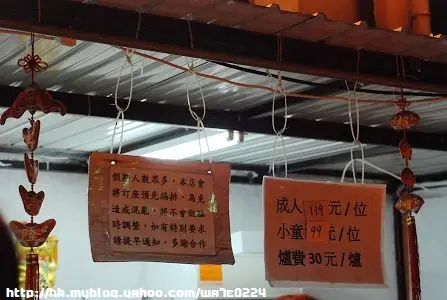 假期人數眾多，本店會
將訂座預先編排，為免
造成混亂，將不會做臨
時調整，如有特別要求
請提早通知，多謝合作
成人 119 元/位
小童 99 元/位
爐費30元/爐
http://hk.myblog.yahoo.com/wa7e0224